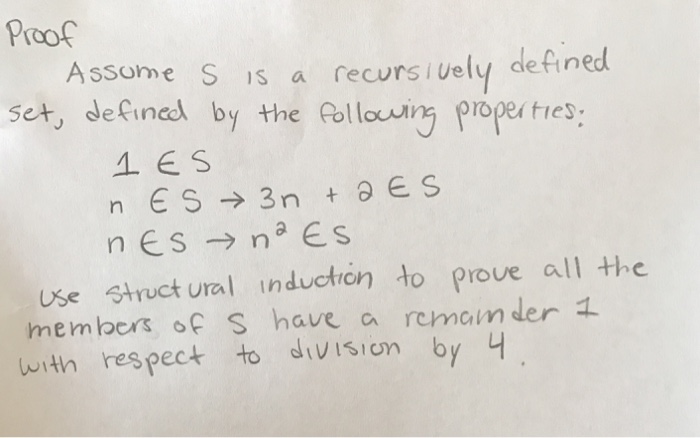 Proof
Assume S is a recursively defined
set, defined by the following properties:
1 ∈ S
n ∈ S → 3n + 2 ∈ S
n ∈ S → n² ∈ S
Use structural induction to prove all the
members of S have a remainder 1
with respect to division by 4.